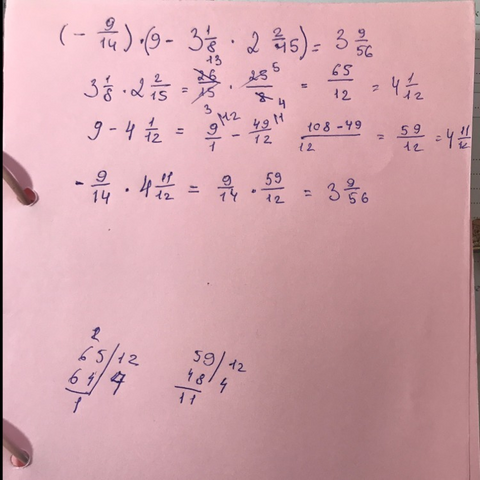 (- 9/14) · (9 - 3 1/8 · 2 2/15) = 3 9/56
3 1/8 · 2 2/15 = 26/15 · 25/8 = 65/12 = 4 1/12
13 5
3 4
9 - 4 1/12 = 9/1 - 49/12 108-49/12 = 59/12 = 4 11/12
- 9/14 · 4 11/12 = 9/14 · 59/12 = 3 9/56
2
65 12 59 12
4 48 4
1 11